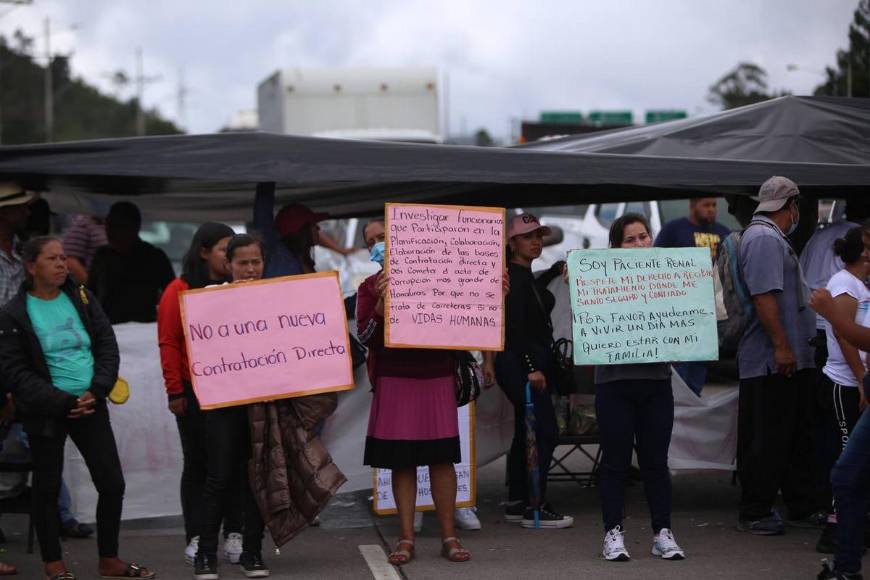 No a una nueva
Contratación Directa
Investigar funcionarios
que Participarón en la
Planificación, Colaboración
Elaboración de las bases
de Contratación directa o
así Cometer el acto de
Corrupción más grande de
Honduras Por que no se
trata de Carreteras si no
de VIDAS HUMANAS
SOY PACIENTE RENAL
RESPETE MI DERECHO A RECIBIR
MI TRATAMIENTO DONDE ME
SIENTO SEGURO Y CONFIADO
POR FAVOR AYUDENME
A VIVIR UN DIA MAS
QUIERO ESTAR CON MI
FAMILIA!